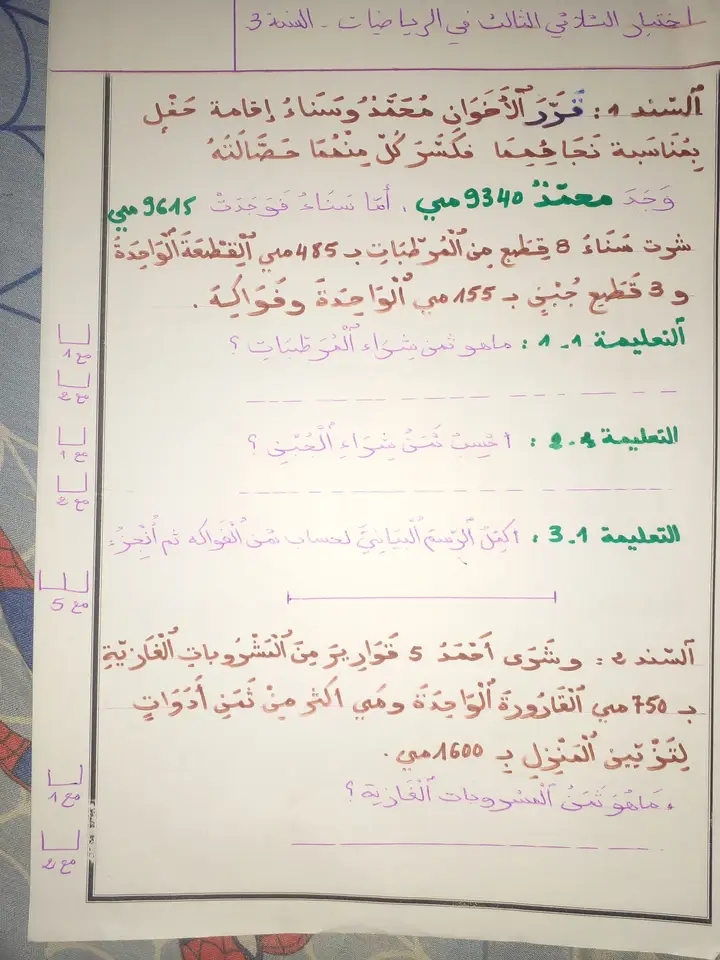 اختبار الثلاثي الثالث في الرياضيات - السنة 3
السّند 1 : قَرَّرَ الْأَخَوَانِ مُحَمَّدٌ وَسَنَاءُ إقامة حَفْلٍ
بِمُنَاسبة نَجَاحِهِمَا فكَسَّرَ كُلٌّ مِنْهُمَا حَصَّالَتَهُ
وَجَدَ محمّدٌ 9340 مي ، أمّا سَنَاءُ فَوَجَدَتْ 9615 مي
شرت سَنَاءُ 8 قِطَعٍ مِن الْمُرَطّبَاتِ بـ 485 مي الْقِطْعَةَ الْوَاحِدَةَ
و 3 قِطَعِ جُبْنٍ بـ 155 مي الْوَاحِدَةَ وفَوَاكِهَ .
التعليمة 1-1 : ماهو ثمن شِرَاءِ الْمُرَطّبَاتِ ؟
مع 1
مع 2
التعليمة 2.1 : اُحْسِبْ ثَمَنَ شِرَاءِ الْجُبْنِ ؟
مع 1
مع 2
التعليمة 3.1 : اكمِلُ الرّسمَ الْبَيَانِيَّ لحساب ثمن الْفواكه ثم أُنْجِزُ :
مع 5
السّند 2 : وشَرَى أَحْمَدُ 5 قَوَارِيرَ مِنَ الْمَشْرُوباتِ الْغَازِيّةِ
بـ 750 مي الْقَارُورَةَ الْوَاحِدَةَ وهي اكثر مِنْ ثَمَنِ أَدَوَاتٍ
لِتَزْيِينِ الْمَنْزِلِ بِـ 1600 مي .
، مَاهُوَ ثَمَنُ الْمشروبات الْغَازية ؟
مع 1
مع 2